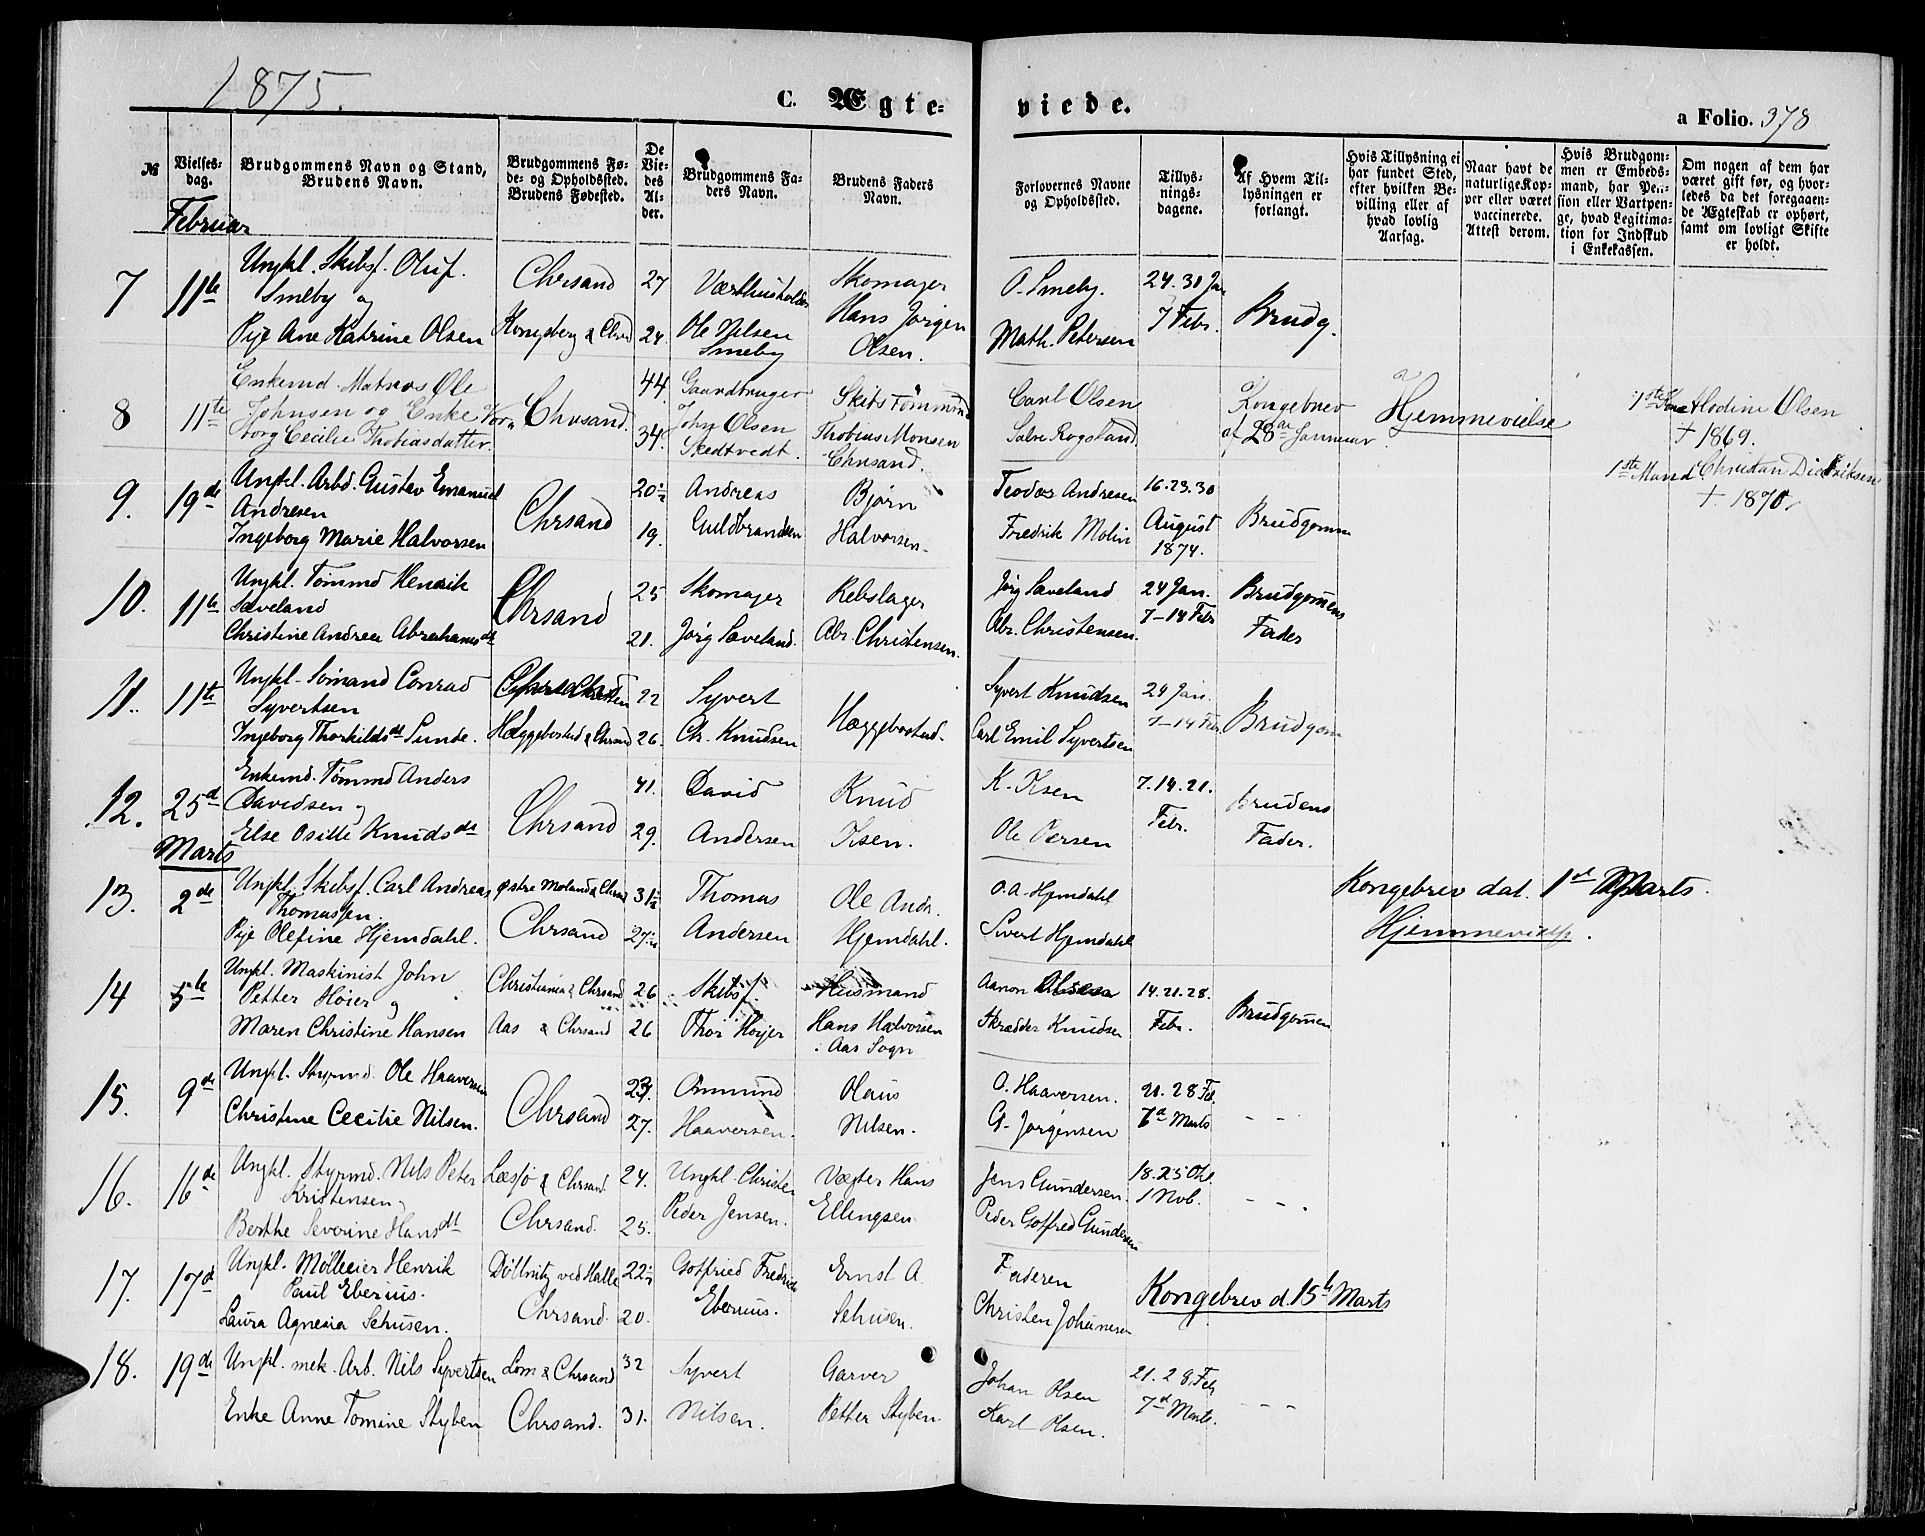 1875.
C. Ægteviede.
a Folio. 378
№
Vielses-dag.
Brudgommens Navn og Stand, Brudens Navn.
Brudgommens Føde- og Opholdssted. Brudens Fødested.
De Viedes Alder.
Brudgommens Faders Navn.
Brudens Faders Navn.
Forlovernes Navne og Opholdssted.
Tillysningsdagene.
Af Hvem Tillysningen er forlangt.
Hvis Tillysning ei har fundet Sted, efter hvilken Bevilling eller af hvad lovlig Aarsag.
Naar havt de naturlige Kopper eller været vaccinerede. Attest derom.
Hvis Brudgommen er Embedsmand, har Pension eller Vartpenge, hvad Legitimation for Indskud i Enkekassen.
Om nogen af dem har været gift før, og hvorledes da det foregaaende Ægteskab er ophørt, samt om lovligt Skifte er holdt.
Februar
7 11te Ungkl. Skibsf. Oluf Smeby og Chrsand 27 Værthusholder Skomager O. Smeby. 24. 31 Jan
Pije Ane Katrine Olsen Kongsberg & Chrsd 24 Ole Nilsen Smeby Hans Jørgen Olsen. Math. Petersen 7 Febr. Brudg.
8 11te Enkemd. Matros Ole Johnsen og Enke Torborg Cecilie Thobiasdatter Chrsand. 44 34. Gaardbruger John Olsen Skedtvedt. Skibstømmmd Thobias Monsen Chrsand. Carl Olsen Salve Rogstand Kongebrev af 28de Januar Hjemmevielse
1ste Kone Hodine Olsen † 1869.
1ste Mand Christian Diedriksen † 1870.
9. 19de Ungkl. Arbd. Gustav Emanuel Andresen Chrsand 20½ Andreas Bjørn Teodor Andresen 16. 23. 30
Ingeborg Marie Halvorsen 19. Guldbrandsen Halvorsen. Fredrik Molin August 1874. Brudgommen
10. 11te Ungkl. Tømmd Henrik Sæveland Chrsand 25 Skomager Rebslager Jørg Sæveland 24 Jan. Brudgomens
Christine Andrea Abrahamsdt 21. Jørg Sæveland. Abr. Christensen. Abr. Christensen. 7-14 Febr Fader
11. 11te Ungkl. Sømand Conrad Syvertsen 22 Syvert Syvert Knudsen 24 Jan.
Ingeborg Thorkildsdt Sunde. Hæggebostad & Chrsand 26. Chr. Knudsen Hæggebostad. Carl Emil Syvertsen 7-14 Febr Brudgom
12. 25d Enkemd. Tømmd Anders Davidsen og Chrsand 41. David Knud K. Isen 7. 14. 21. Brudens
Else Osille Knudsdt 29. Andersen Isen. Ole Versen Febr. Fader.
Marts
13. 2de Ungkl. Skibsf. Carl Andreas Thomassen. Østre Moland & Chrsand 31½ Thomas Ole Andr. O. A. Hjemdahl Kongebrev dat. 1st Marts.
Pije Olefine Hjemdahl. Chrsand 27½ Andersen Hjemdahl. Sivert Hjemdahl Hjemmevielse.
14 5te Ungkl. Maskinist John Petter Høier og Christiania & Chrsand 26 Skibsf. Husmand Aanon Olsen 14. 21. 28.
Maren Christine Hansen Aas & Chrsand 26 Thor Høyer Hans Halvorsen Aas Sogn Skrædder Knudsen Febr. Brudgomen
15. 9de Ungkl. Styrmd. Ole Haaversen Chrsand 23. Ommund Olaus O. Haaversen. 21. 28 Feb.
Christine Cecilie Nilsen. 27. Haaversen. Nilsen. G. Jørgensen 7d Marts - -
16. 16de Ungkl. Styrmd. Nils Peter Kristensen Læsø & Chrsand 24. Ungkl. Christen Vægter Hans Jens Gundersen. 18. 25 Okt.
Berthe Severine Hansdt Chrsand. 25. Peder Jensen. Ellingsen Peder Gotfred Gundersen 1 Nov. - - .
17. 17d Ungkl. Møllerier Henrik Paul Eberius. Döllnitz ved Halle 22½ Gotfried Fredrich Ernst A. Faderen Kongebrev d. 15de Marts
Laura Agnesia Schusen. Chrsand. 20. Eberius. Schusen. Christen Johannesen
18. 19de Ungkl. mek. Arb. Nils Syvertsen Lom & Chrsand 32 Syvert Garver Johan Olsen 21. 28 Feb
Enke Anne Tomine Styben Chrsand. 31. Nilsen. Petter Styben Karl Olsen. 7d Marts. - - -